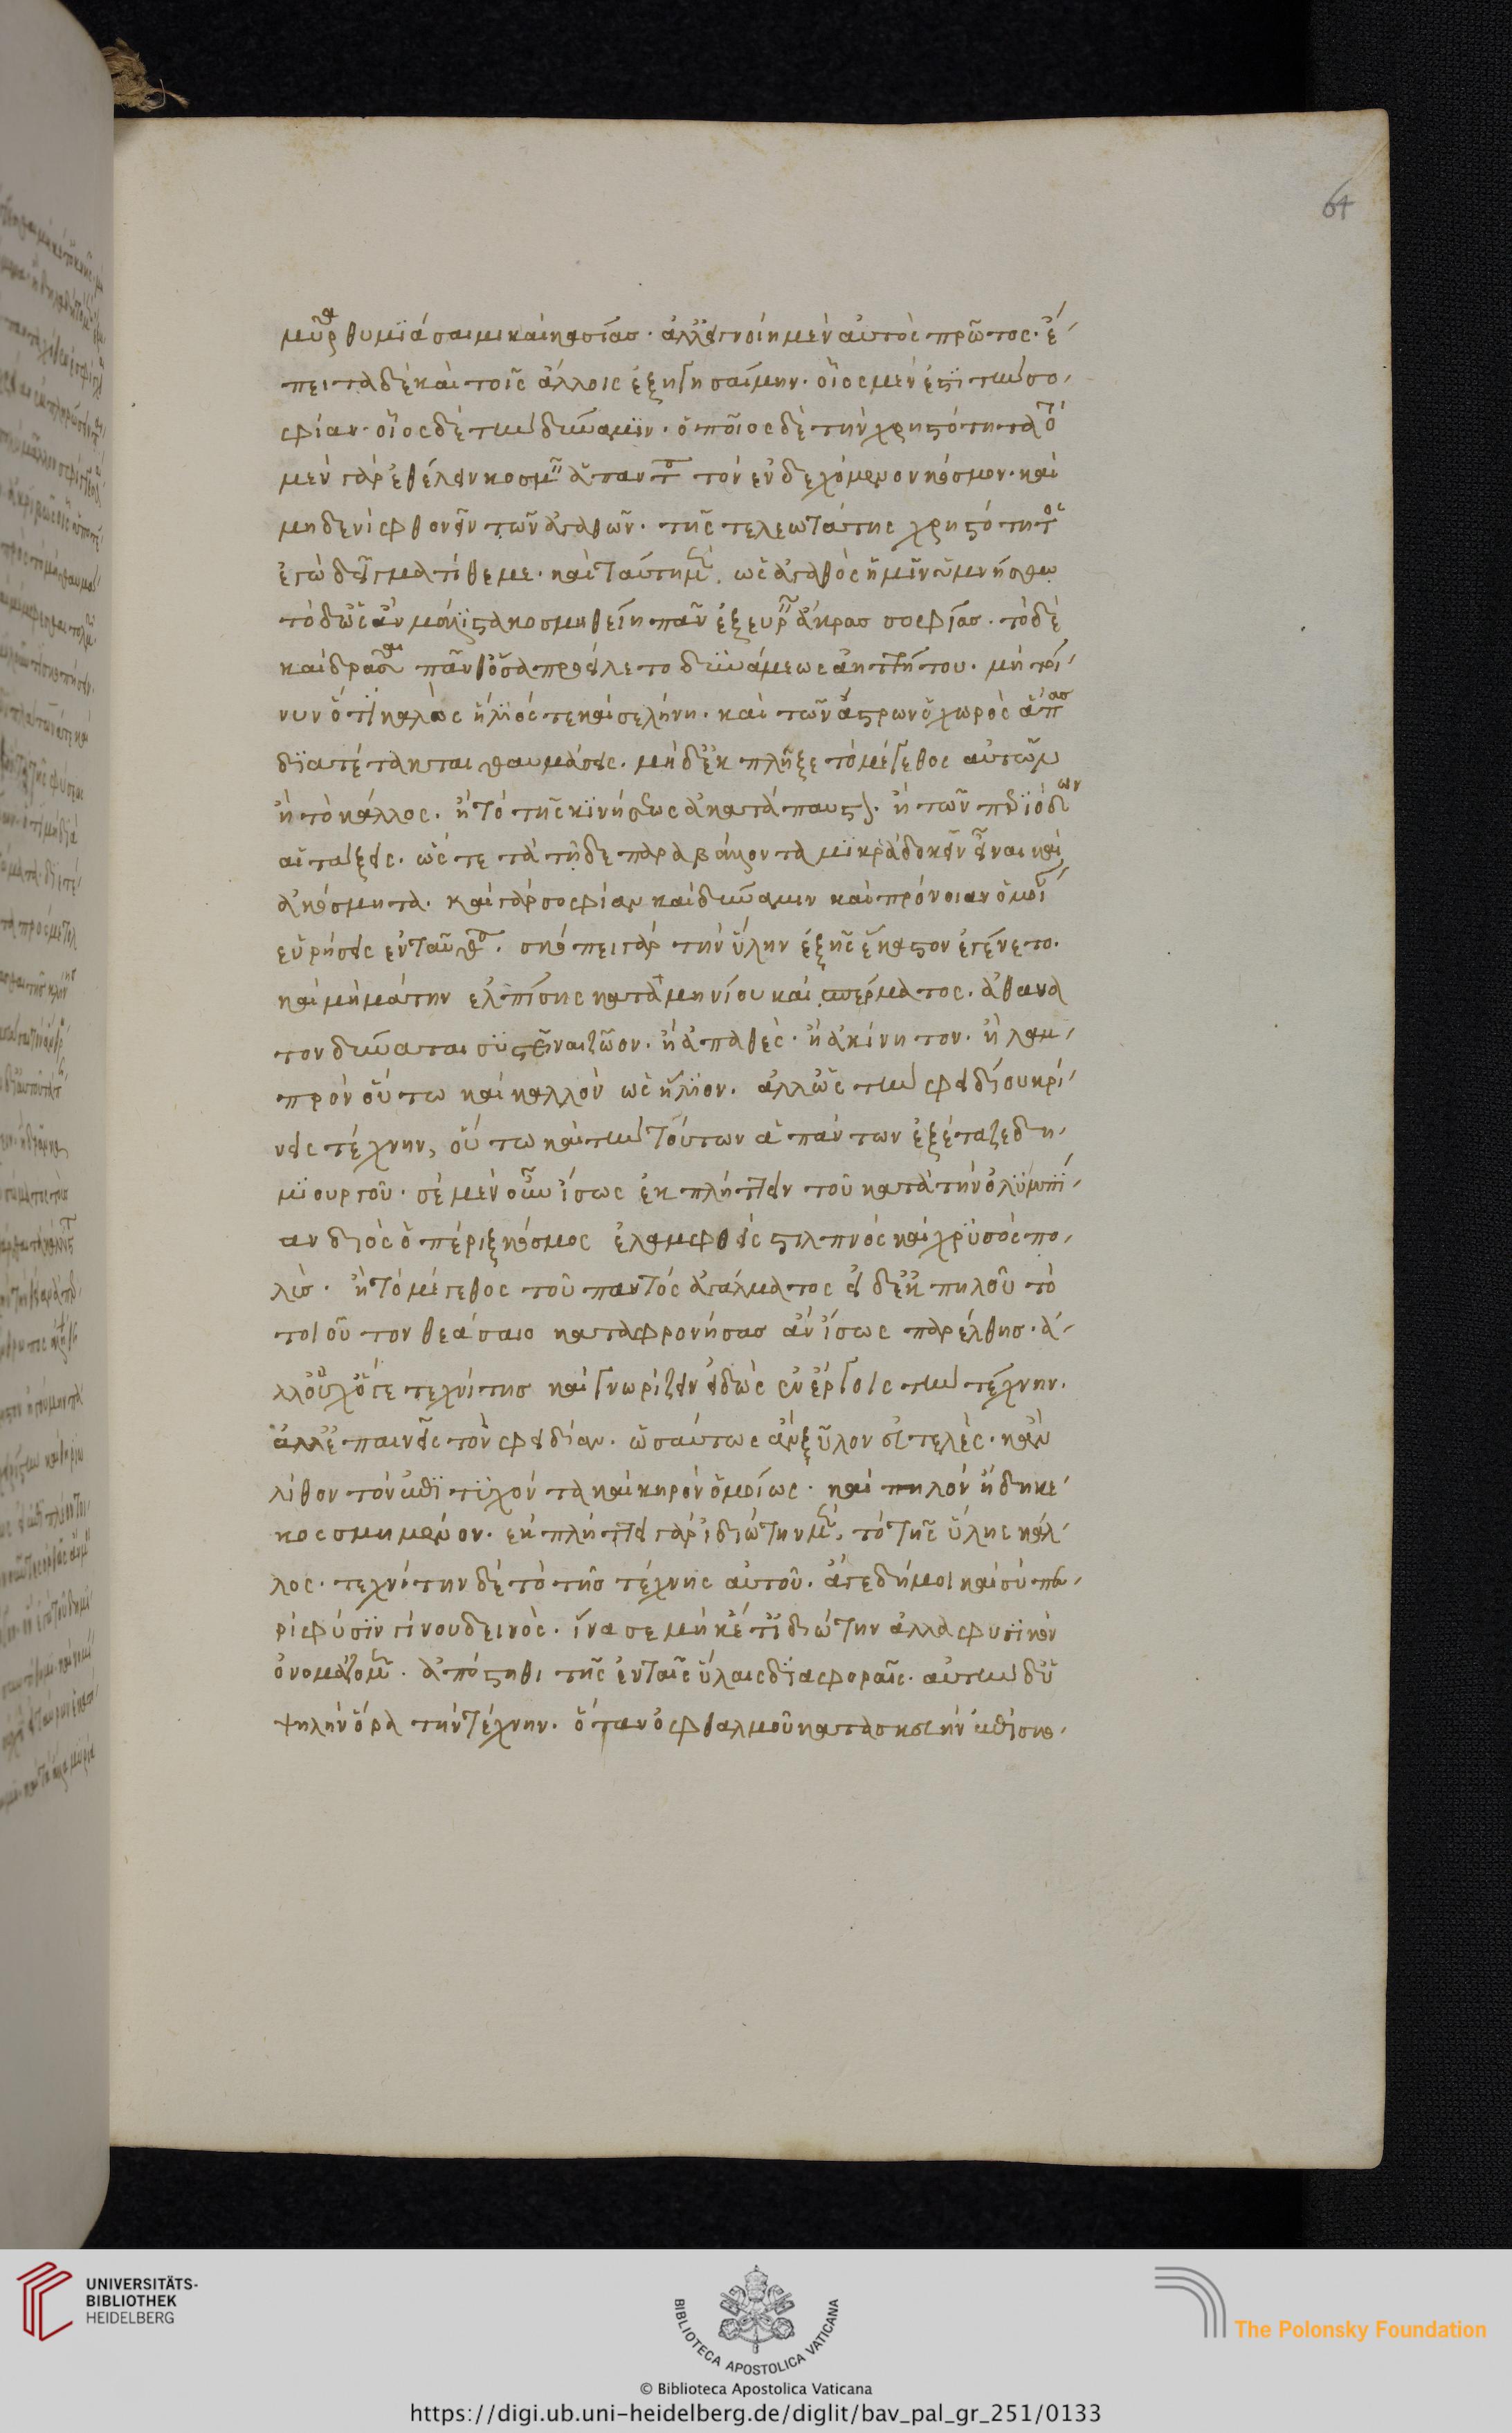 64
μύρα θυμιάσαιμι καὶ κασίας· ἀλλ' εἰ γνοίην μὲν αὐτὸς πρῶτος· ἔ-
πειτα δὲ καὶ τοῖς ἄλλοις ἐξηγησαίμην· οἷος μέν ἐστι τὴν σο-
φίαν· οἷος δὲ τὴν δύναμιν· ὁποῖος δὲ τὴν χρηστότητα· τὸ
μὲν γὰρ ἐθέλειν κοσμεῖν ἅπαντα τὸν ἐνδεχόμενον κόσμον· καὶ
μηδενὶ φθονεῖν τῶν ἀγαθῶν· τῆς τελεωτάτης χρηστότητος
ἐγὼ δεῖγμα τίθεμαι· καὶ ταύτη μὲν, ὡς ἀγαθὸς ἡμῖν ὑμνήσθω
τὸ δ' ὡς ἂν μάλιστα κοσμηθείη πᾶν ἐξευρεῖν ἄκρας σοφίας· τὸ δὲ
καὶ δρᾶσαι πᾶνθ' ὅσα προείλετο δυνάμεως ἀηττήτου· μὴ τοί-
νυν ὅτι καλῶς ἥλιός τε καὶ σελήνη· καὶ τῶν ἄστρων ὁ χωρὸς ἅπας
διατέτακται θαυμάσεις· μὴ δ' ἐκπλήξει τὸ μέγεθος αὐτῶν
ἢ τὸ κάλλος· ἢ τὸ τῆς κινήσεως ἀκατάπαυστον· ἢ τῶν περιόδων
αἱ τάξεις· ὥς τε τὰ τῇδε παραβάλλοντα μικρὰ δοκεῖν εἶναι καὶ
ἀκόσμητα· καὶ γὰρ σοφίαν καὶ δύναμιν καὶ πρόνοιαν ὁμοίαν
εὑρήσεις ἐνταῦθα· σκόπει γὰρ τὴν ὕλην ἐξ ἧς ἕκαστον ἐγένετο·
καὶ μὴ μάτην ἐλπίσης καταμηνίου καὶ σπέρματος· ἀθάνα
τον δύνασθαι συστῆναι ζῶον· ἢ ἀπαθὲς· ἢ ἀκίνητον· ἢ λαμ-
πρὸν οὕτω καὶ καλλὸν ὡς ἥλιον· ἀλλ' ὡς τὴν φειδίου κρί-
νεις τέχνην, οὕτω καὶ τὴν τούτων ἁπάντων ἐξέταζε δη-
μιουργοῦ· σὲ μὲν οὖν ἴσως ἐκπλήττειν τοῦ κατὰ τὴν ὀλυμπί-
αν διὸς ὁ πέριξ κόσμος ἐλαμφθεὶς στιλπνὸς καὶ χρυσὸς πο-
λὺς· ἢ τὸ μέγεθος τοῦ παντὸς ἀγάλματος εἰ δ' ἐκ πηλοῦ τὸ
τοιοῦτον θεάσαιο καταφρονήσας ἂν ἴσως παρέλθης· ἀ-
λλ' οὐχ ὅγε τεχνίτης καὶ γνωρίζειν εἰδὼς ἐν ἔργοις τὴν τέχνην·
ἀλλ' ἐπαινεῖς τὸν φειδίαν· ὡσαύτως ἂν ξύλον εὐτελὲς· κἂν
λίθον τὸν ἐπιτυχόντα καὶ κηρὸν ὁμοίως· καὶ πηλὸν ἤδη κε-
κοσμημένον· ἐκπλήττει γὰρ ἰδιώτην μὲν, τὸ τῆς ὕλης κάλ-
λος· τεχνίτην δὲ τὸ τῆς τέχνης αὐτοῦ· ἄγε δή μοι καὶ σὺ πε-
ρὶ φύσιν γίνου δεινὸς· ἵνα σε μὴ κέτι ἰδιώτην ἀλλὰ φυσικὸν
ὀνομάζομεν· ἀπόστηθι τῆς ἐν ταῖς ὕλαις διαφοραῖς· αὐτὴν δ' ὑ
ψηλὴν ὅρα τὴν τέχνην· ὅταν ὀφθαλμοῦ κατασκευὴν ἐπισκο-
UNIVERSITÄTS-
BIBLIOTHEK
HEIDELBERG
BIBLIOTECA APOSTOLICA VATICANA
The Polonsky Foundation
© Biblioteca Apostolica Vaticana
https://digi.ub.uni-heidelberg.de/diglit/bav_pal_gr_251/0133